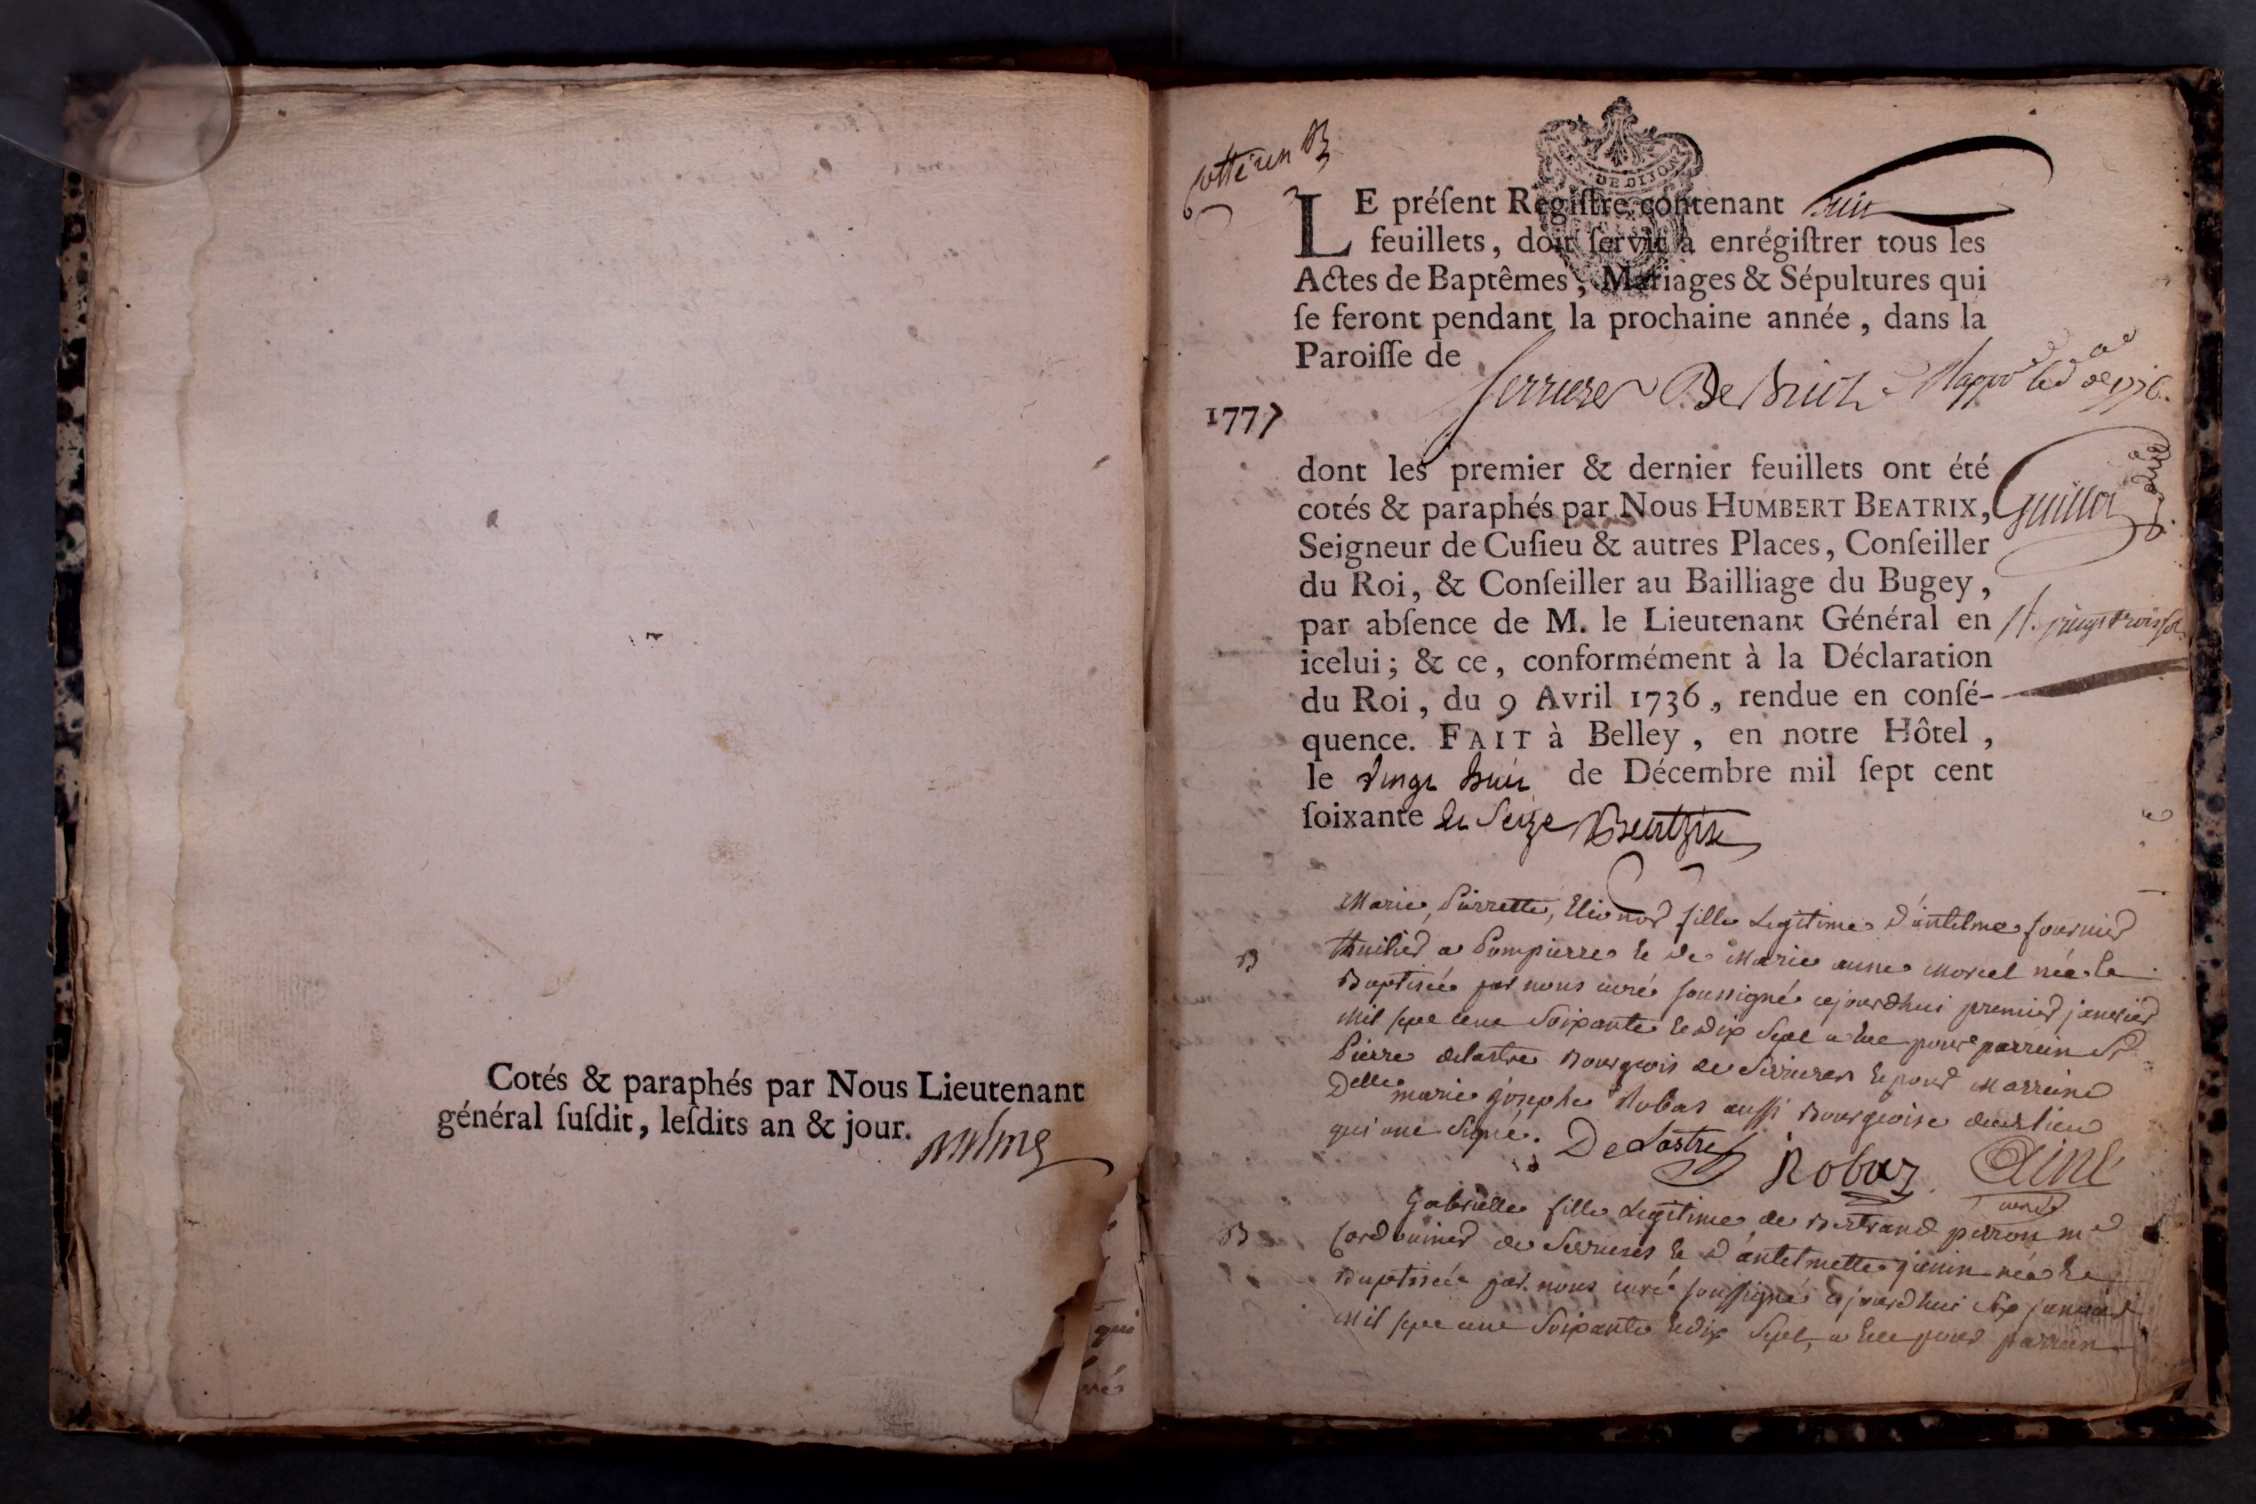 Cotés & paraphés par Nous Lieutenant
général ſuſdit, leſdits an & jour.
Cottéren B
DE DIJON
LE préſent Regiſtre contenant huit
feuillets, doit ſervir à enrégiſtrer tous les
Actes de Baptêmes, Mariages & Sépultures qui
ſe feront pendant la prochaine année, dans la
Paroiſſe de
Serrieres De Briord
1777
dont les premier & dernier feuillets ont été
cotés & paraphés par Nous HUMBERT BEATRIX,
Guillot
Seigneur de Cuſieu & autres Places, Conſeiller
du Roi, & Conſeiller au Bailliage du Bugey,
par abſence de M. le Lieutenant Général en
icelui; & ce, conformément à la Déclaration
du Roi, du 9 Avril 1736, rendue en conſé-
quence. FAIT à Belley, en notre Hôtel,
le vingt huit de Décembre mil ſept cent
ſoixante et Seize Beatrix
Marie, Pierrette, Elionor fille Legitime d'antelme fournier
B
thuilier a Pompierre et de Marie anne morel née et
Baptisée par nous curé soussigné cejourdhui premier janvier
mil sept cent Soixante et dix Sept a Eue pour parrein Sr
Pierre delastre Bourgeois de Serrieres et pour Marreine
Delle marie josephe Robas aussi Bourgeoise dudt lieu
qui ont Signé. De Lastre Robaz Ainé
curé
Gabrielle fille Legitime de Bertrand perron md
B
Cordonnier de Serrieres et d'antelmette genin née et
Baptisée par nous curé soussigné cejourdhui Six janvier
mil sept cent Soixante et dix Sept, a Eue pour parrein